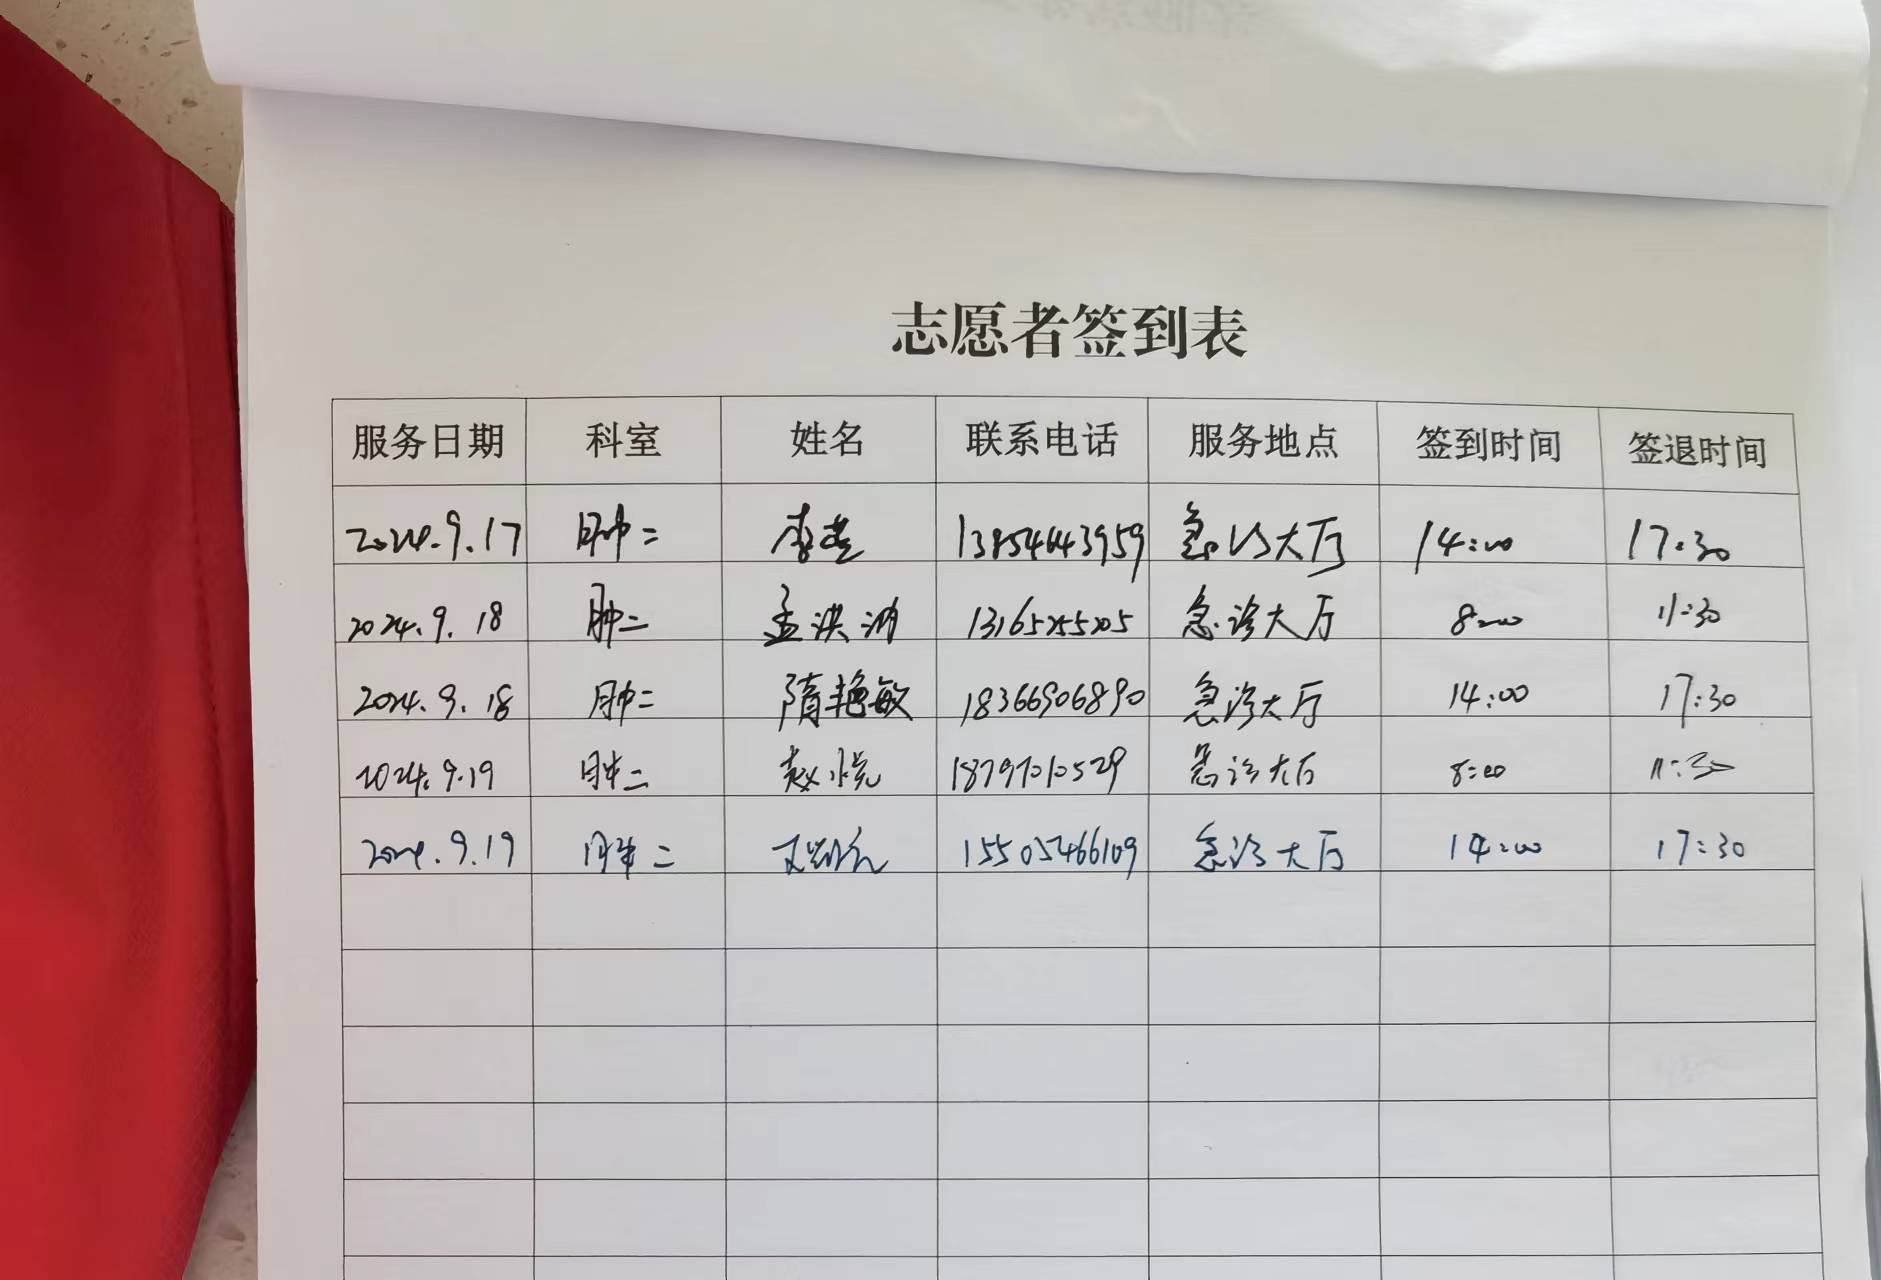 志愿者签到表
服务日期 科室 姓名 联系电话 服务地点 签到时间 签退时间
2024.9.17 肿二 13854643959 急诊大厅 14:00 17:30
2024.9.18 肿二 孟洪 急诊大厅 8:00 11:30
2024.9.18 肿二 隋艳敏 18366906890 急诊大厅 14:00 17:30
2024.9.19 肿二 赵悦 急诊大厅 8:00 11:30
2024.9.19 肿二 15505466109 急诊大厅 14:00 17:30